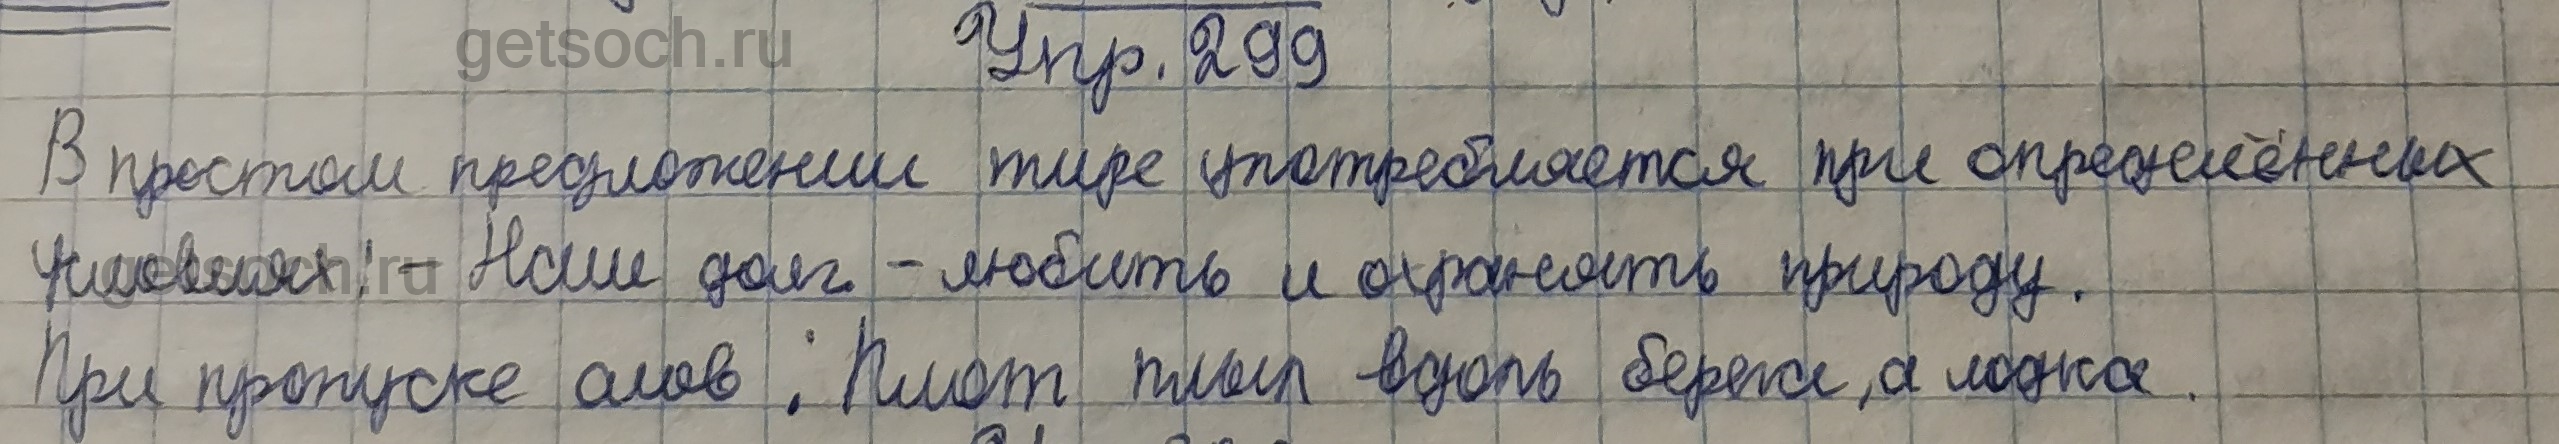 getsoch.ru
Упр. 299
В простом предложении тире употребляется при определённых
условиях: - Наш долг - любить и охранять природу.
getsoch.ru
При пропуске слов: Плот плыл вдоль берега, а лодка.